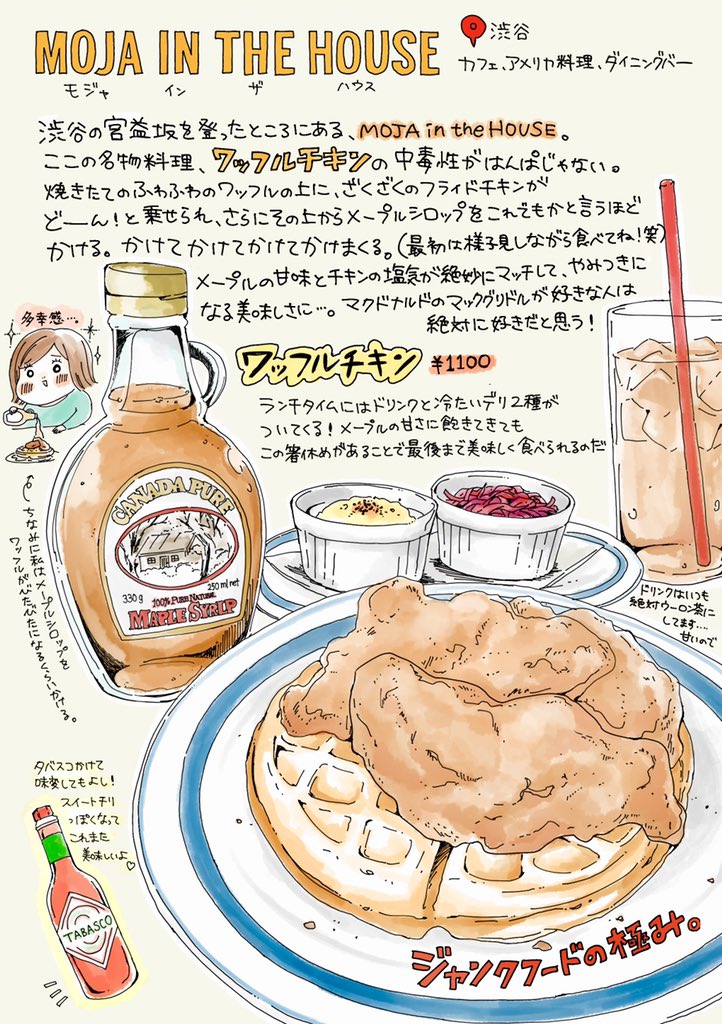 MOJA IN THE HOUSE
モジャ イン ザ ハウス
渋谷
カフェ、アメリカ料理、ダイニングバー
渋谷の宮益坂を登ったところにある、MOJA in the HOUSE。
ここの名物料理、ワッフルチキンの中毒性がはんぱじゃない。
焼きたてのふわふわのワッフルの上に、ざくざくのフライドチキンが
どーん！と乗せられ、さらにその上からメープルシロップをこれでもかと言うほど
かける。かけてかけてかけてかけまくる。（最初は様子見しながら食べてね！笑）
メープルの甘味とチキンの塩気が絶妙にマッチして、やみつきに
なる美味しさに…。マクドナルドのマックグリドルが好きな人は
絶対に好きだと思う！
多幸感…。
ワッフルチキン ¥1100
ランチタイムにはドリンクと冷たいデリ2種が
ついてくる！メープルの甘さに飽きてきても
この箸休めがあることで最後まで美味しく食べられるのだ
ちなみに私はメープルシロップを
ワッフルがびたびたになるくらいかける。
CANADA PURE
330g 250 ml net
100% PURE NATURAL
MAPLE SYRUP
ドリンクはいつも
絶対ウーロン茶に
してます…。
甘いので
タバスコかけて
味変してもよし！
スイートチリ
っぽくなって
これまた
美味しいよ♡
TABASCO
ジャンクフードの極み。